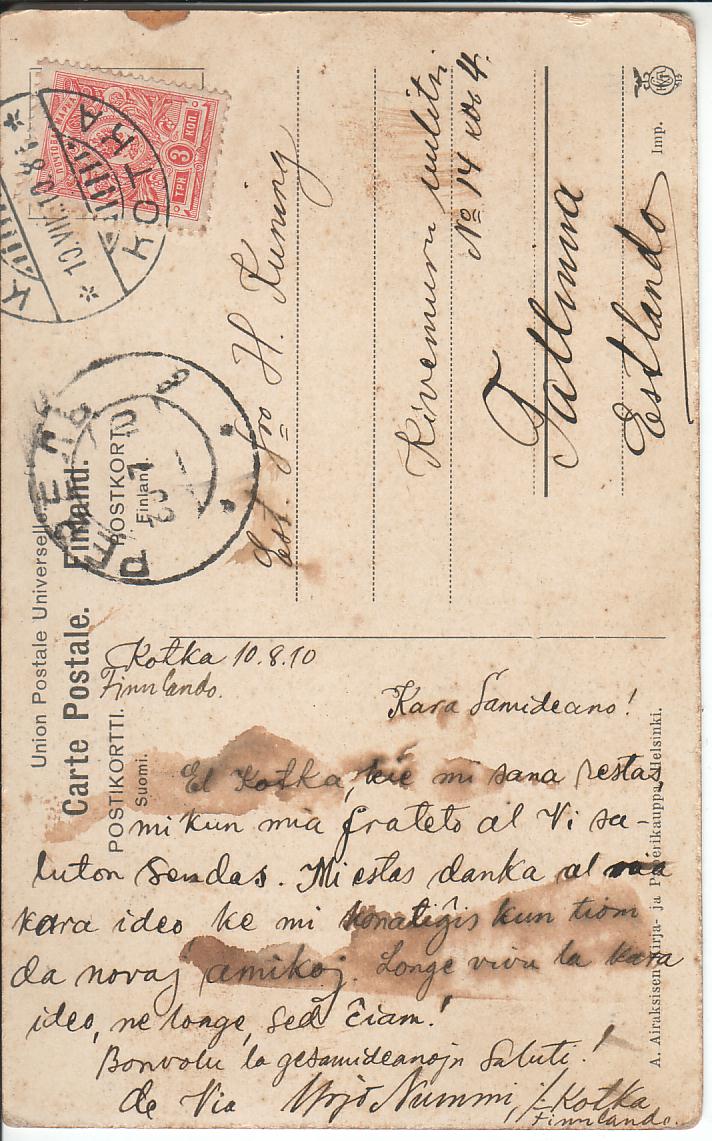 Union Postale Universelle.
Carte Postale. Finland.
POSTIKORTTI. POSTKORT
Suomi. Finland.
ТРИ 3 КОП
KOTKA
10.VII.10.8
РЕВЕЛЬ
Est. Sro H. Kuning
Kivemuru uulitsi
No 14 kor 4.
Tallinna
Estlando
Imp.
Kotka 10.8.10
Finnlando.
Kara Samideano!
El Kotka, kie mi sana restas,
mi kun mia frateto al Vi sa-
luton sendas. Mi estas danka al
kara ideo ke mi konatiĝis kun tiom
da novaj amikoj. Longe vivu la kara
ideo, ne longe, sed ĉiam!
Bonvolu la gesamideanojn saluti!
de Via Yrjö Nummi, Kotka
Finnlando.
A. Airaksisen Kirja- ja Paperikauppa, Helsinki.